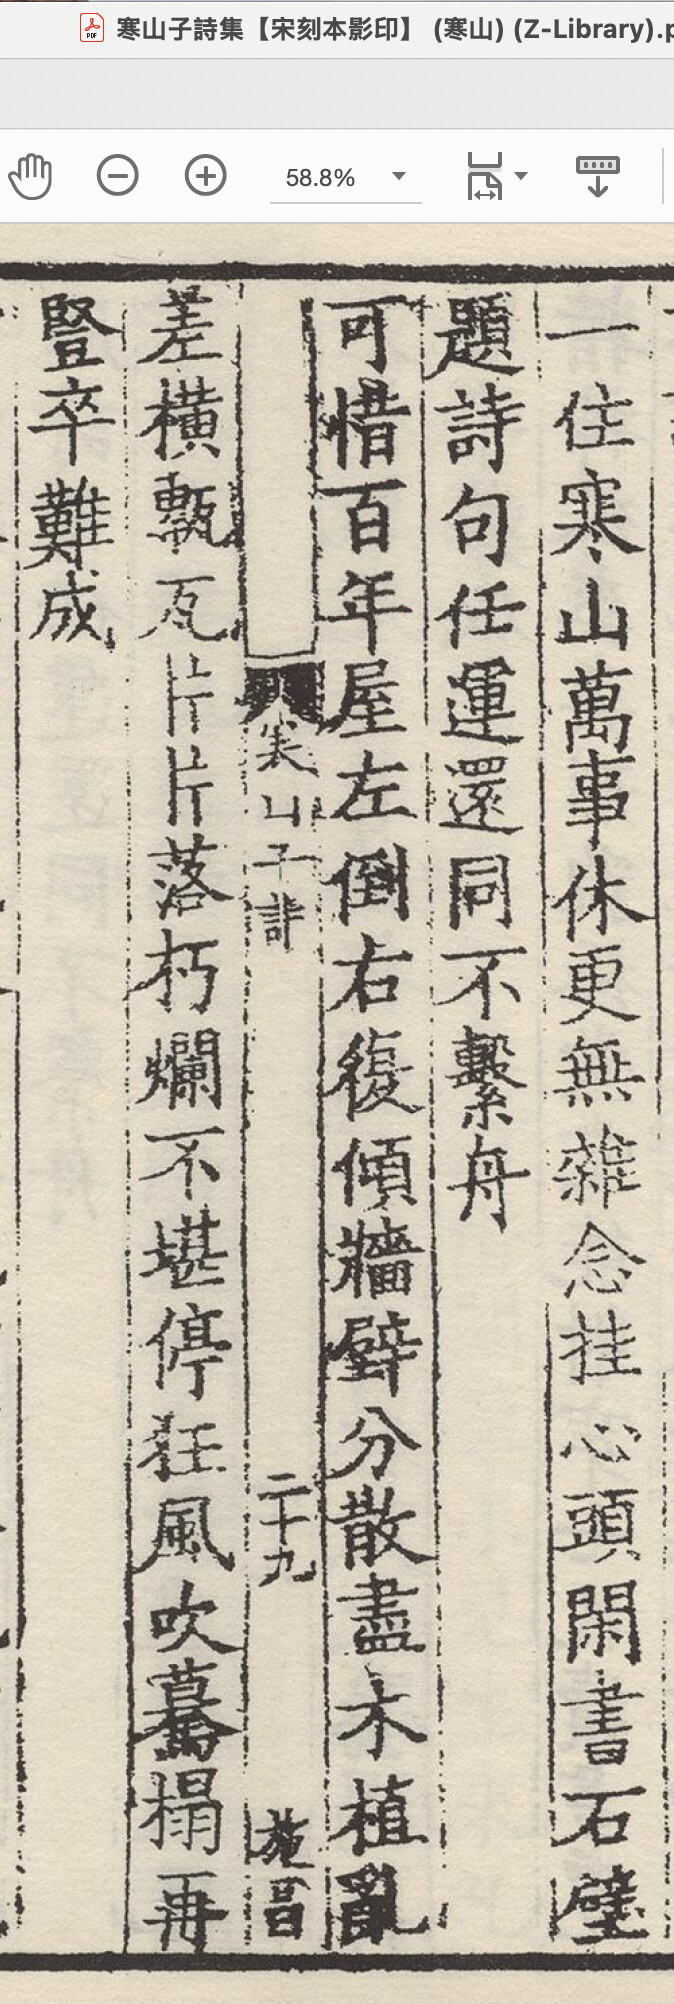 寒山子詩集【宋刻本影印】 (寒山) (Z-Library).p
58.8%
一住寒山萬事休更無雜念挂心頭閑書石壁
題詩句任運還同不繫舟
可惜百年屋左倒右復傾牆壁分散盡木植亂
寒山子詩
二十九
施昌
差橫甎瓦片片落朽爛不堪停狂風吹驀榻再
豎卒難成